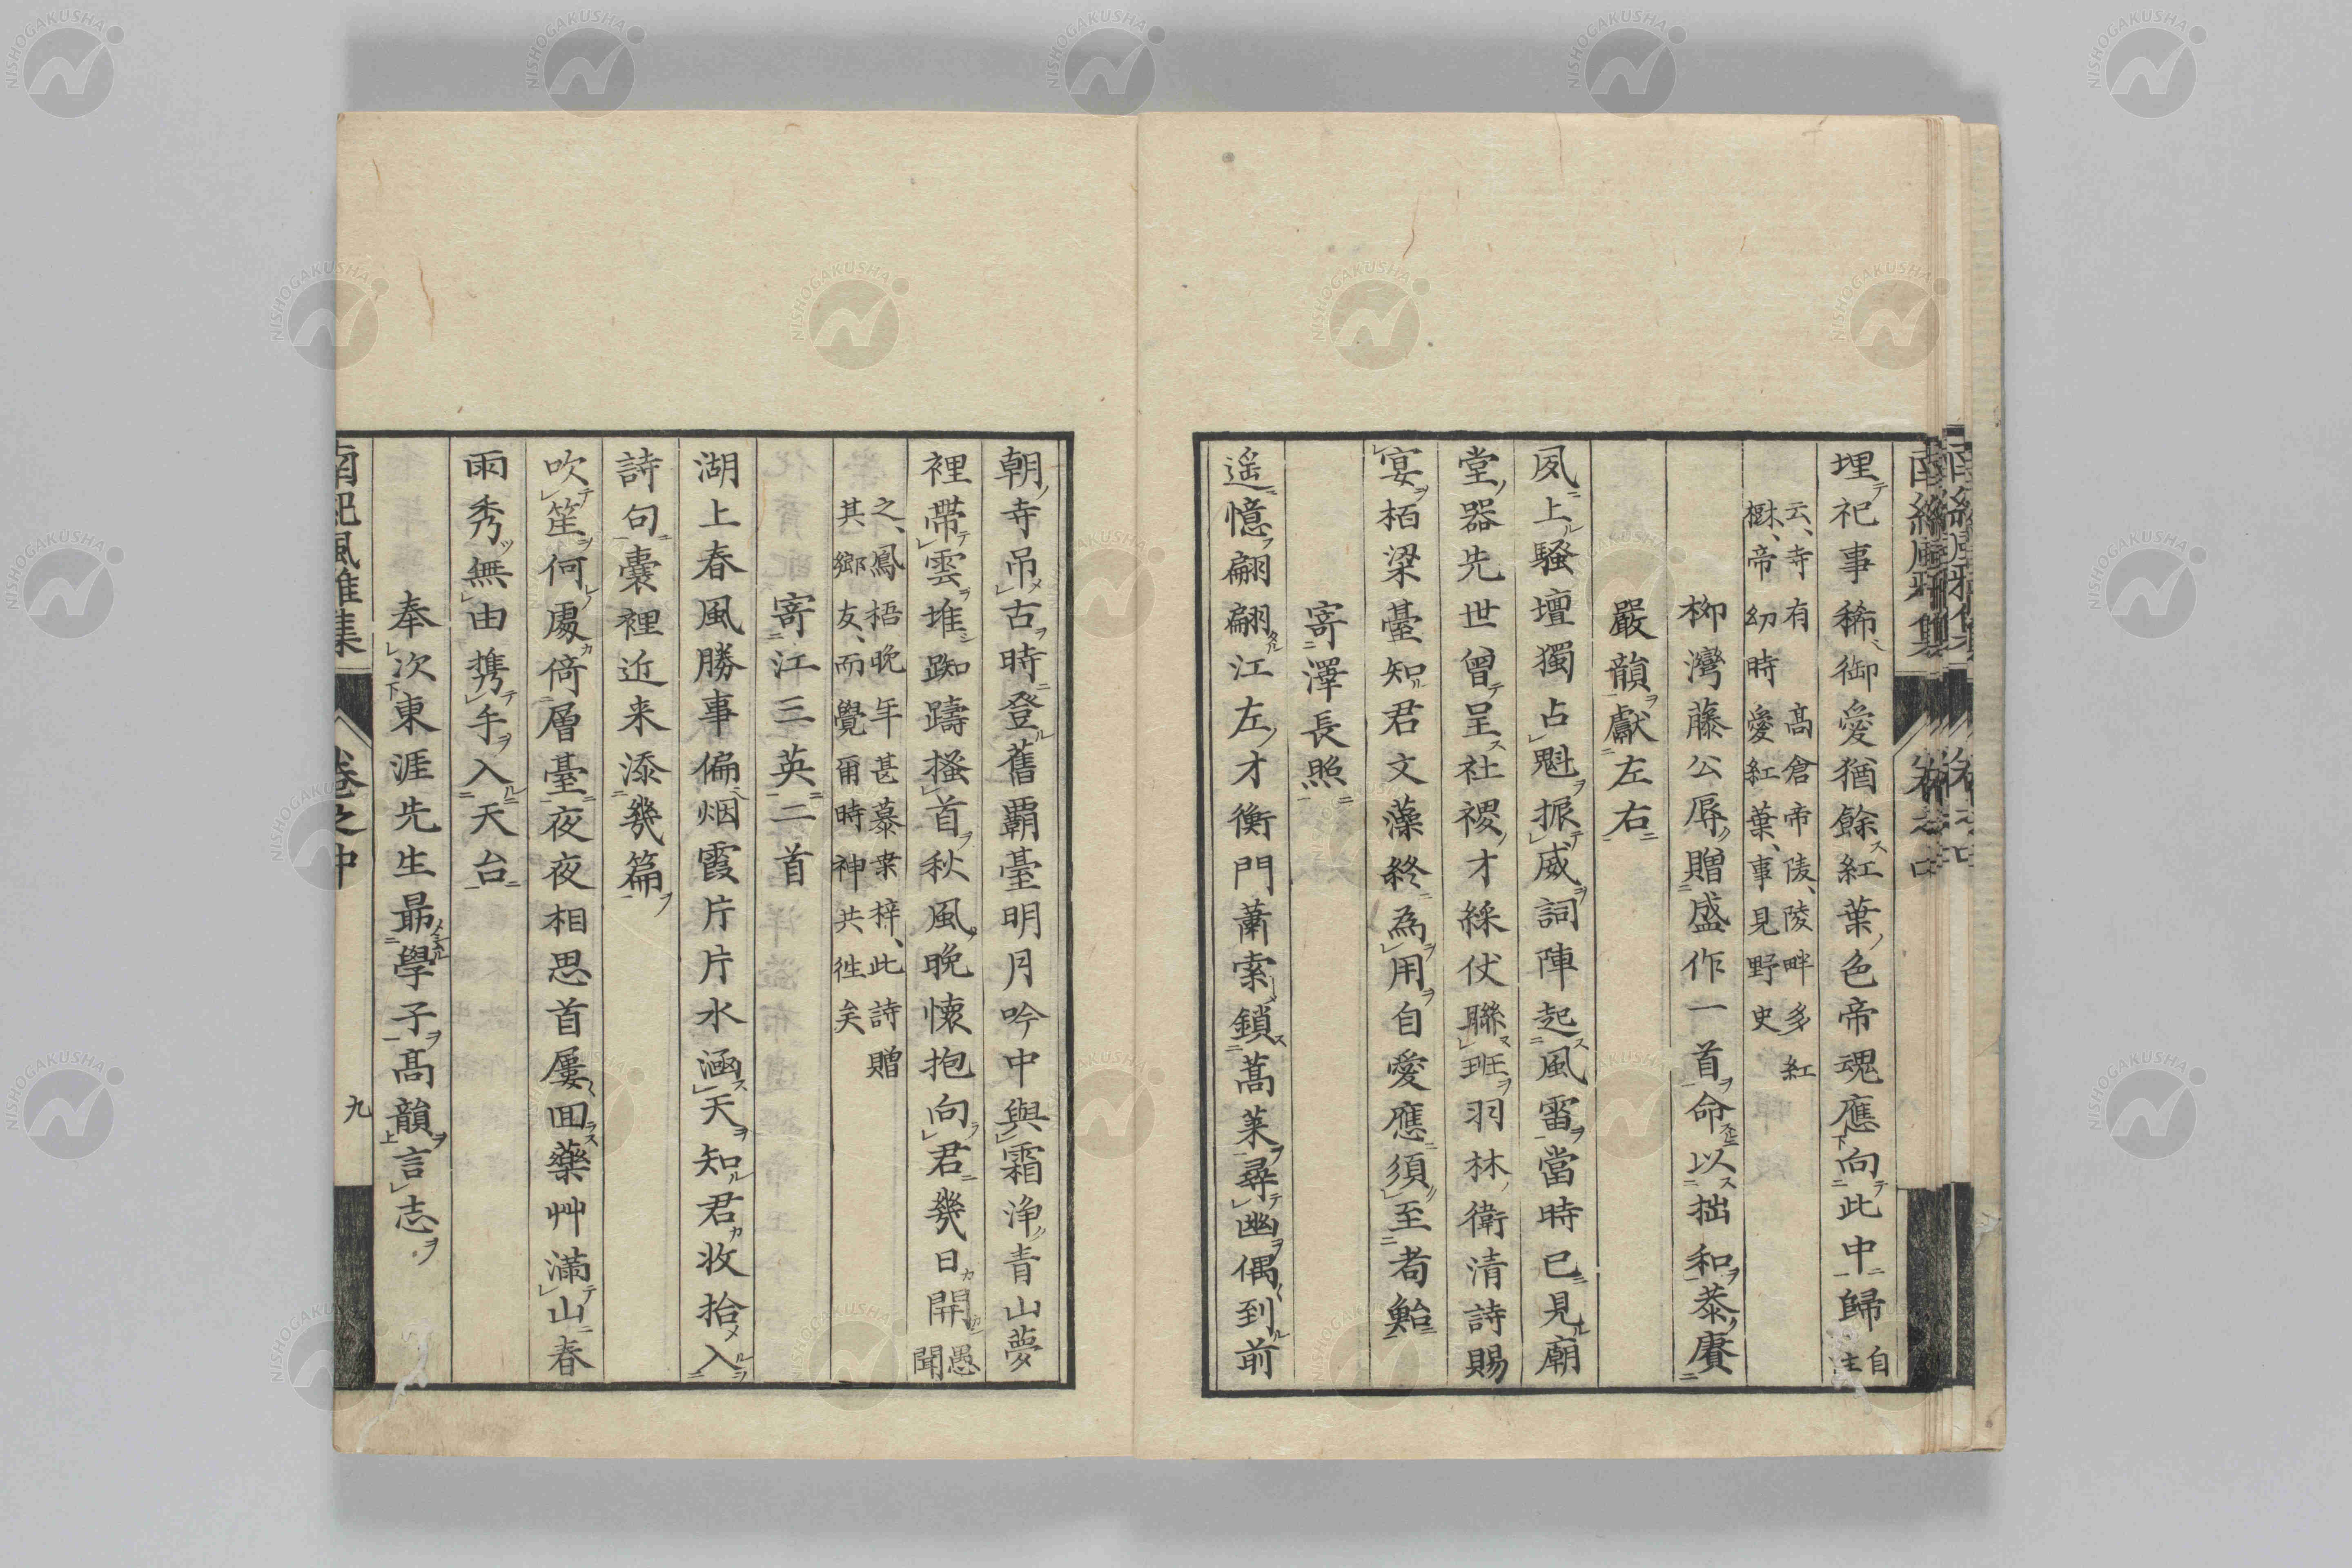 埋祀事稀御愛猶餘紅葉色帝魂應向此中歸自注
云、寺有高倉帝陵、陵畔多紅
樹、帝幼時愛紅葉、事見野史
柳灣藤公辱贈盛作一首命以拙和恭賡
嚴韻獻左右
夙上騷壇獨占魁振威詞陣起風雷當時已見廟
堂器先世曾呈社稷才綵仗聯班羽林衛清詩賜
宴栢梁臺知君文藻終為用自愛應須至耇鮐
寄澤長照
遥憶翩翩江左才衡門蕭索鎖蒿萊尋幽偶到前
朝寺吊古時登舊覇臺明月吟中與霜浄青山夢
裡帶雲堆踟躊搔首秋風晩懷抱向君幾日開愚聞
之、鳳梧晩年甚慕桑梓、此詩贈
其鄉友、而覺爾時神共徃矣
寄江三英二首
湖上春風勝事偏烟霞片片水涵天知君收拾入
詩句囊裡近来添幾篇
吹笙何處倚層臺夜夜相思首屢囬藥艸滿山春
雨秀無由携手入天台
奉次東涯先生最學子高韻言志
南紀風雅集
卷之中
九